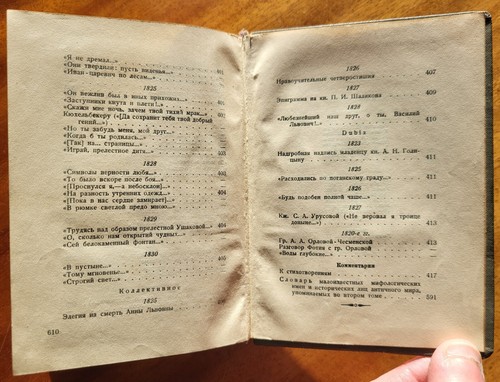 «Я не дремал...»
«Они твердили: пусть виденья...» 401
«Иван-царевич по лесам...»
1825
«Он вежлив был в иных прихожих...»
«Заступники кнута и плети!...»
«Скажи мне ночь, зачем твой тихий мрак...»
Кюхельбекеру («[Да сохранит тебя твой добрый
гений]...»)
«Но ты забудь меня, мой друг...»
«Когда б ты родилась...»
«[Так] на... страницы...» 403
«Играй, прелестное дитя...» 403
1828
«Символы верности любя...»
«То было вскоре после боя...»
«[Проснулся я,—а небосклон]...»
«На разность утренних одежд...» 404
«[Пока в нас сердце замирает]...»
«В рюмке светлой предо мною...»
1829
«Трудясь над образом прелестной Ушаковой...»
«О, сколько нам открытий чудных...»
«Сей белокаменный фонтан...»
1830
«В пустыне...»
«Тому мгновенье...»
«Строгий свет...»
Коллективное
1825
Элегия на смерть Анны Львовны
610
1826
Нравоучительные четверостишия 407
1827
Эпиграмма на кн. П. И. Шаликова 409
1828
«Любезнейший наш друг, о ты, Василий
Львович!...»
Dubia
1823
Надгробная надпись владентцу кн. А. Н. Голи-
цыну 411
1825
«Расходились по поганскому граду...» 411
1826
«Будь подобен полной чаше...» 411
1827
Кн. С. А. Урусовой («Не веровал я троице
доныне...») 413
1820-е гг.
Гр. А. А. Орловой-Чесменской 413
Разговор Фотия с гр. Орловой
«Воды глубокие...»
Комментарии
К стихотворениям 417
Словарь малоизвестных мифологических
имен и исторических лиц античного мира,
упоминаемых во втором томе 591